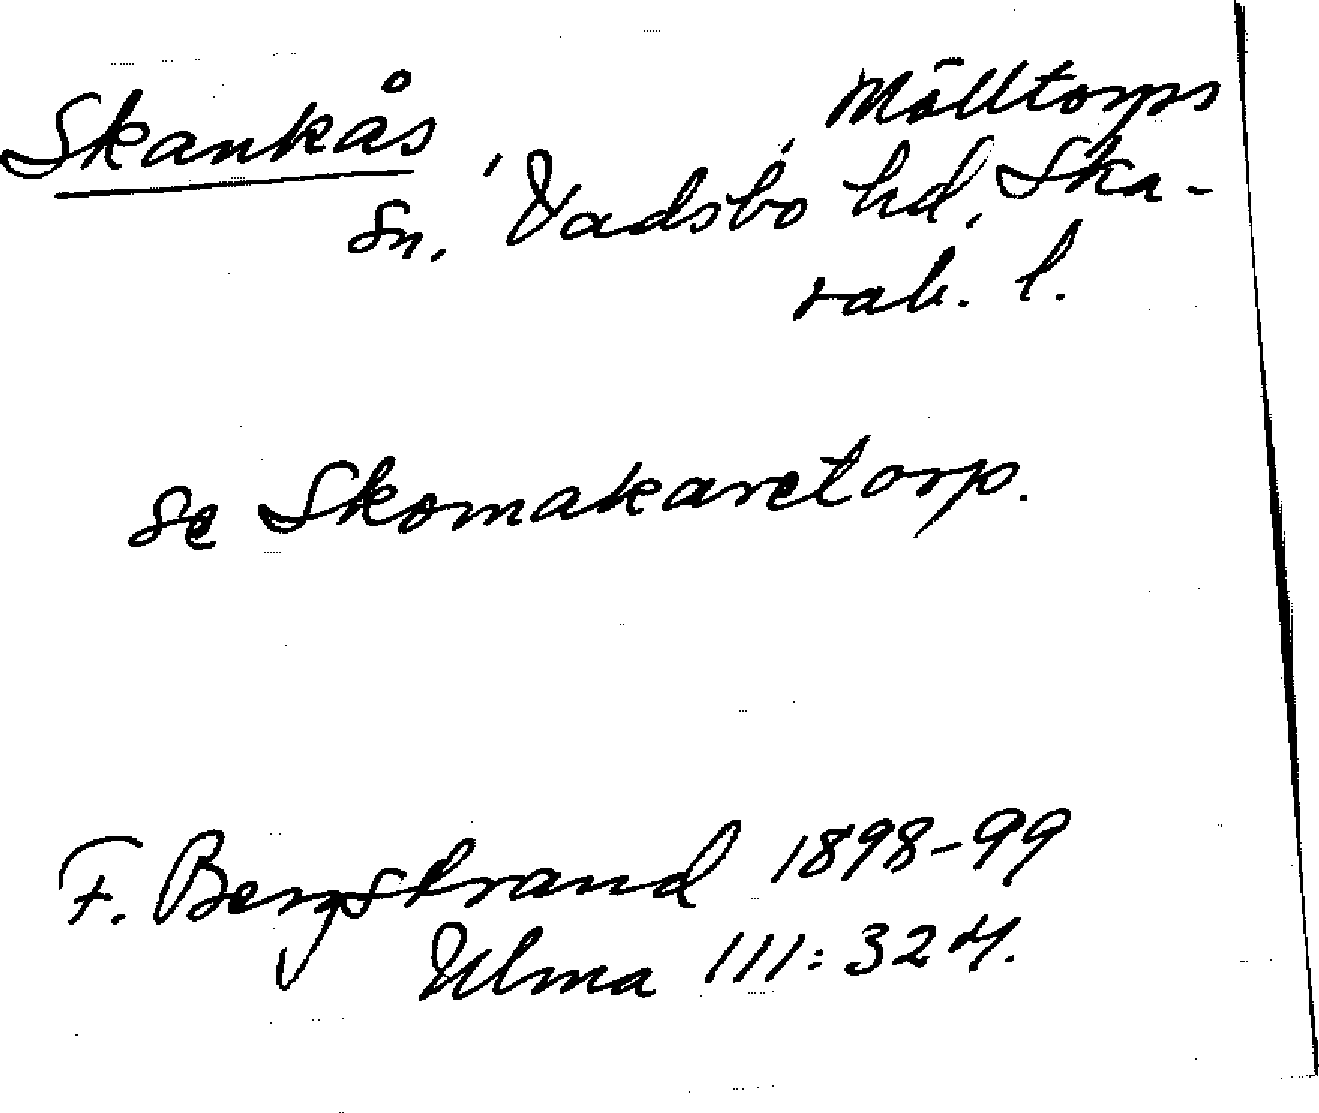 Skankås, Mölltorps
sn, Vadsbo hd, Ska-
rab. l.
se Skomakaretorp.
F. Bergstrand 1898-99
Ulma 111:324.